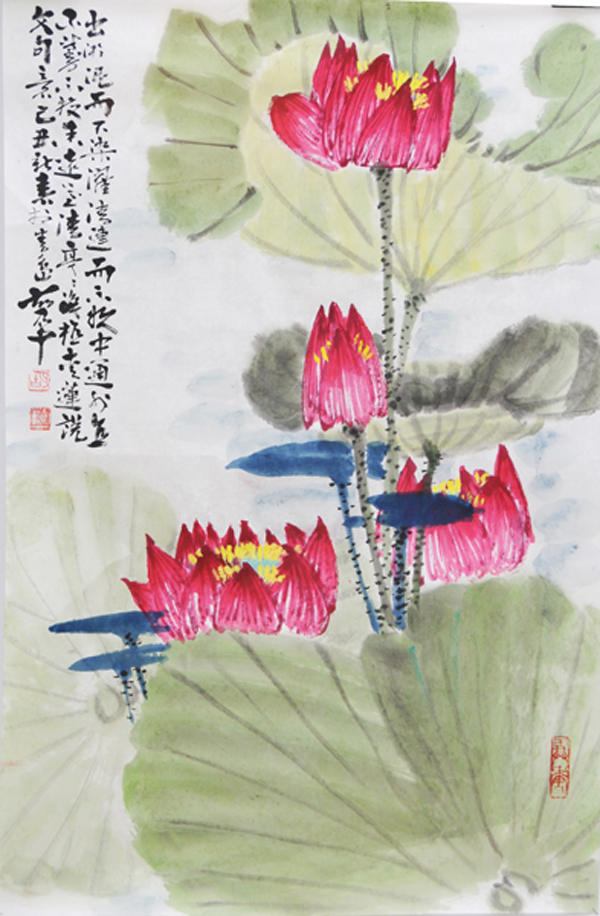 出淤泥而不染濯清漣而不妖中通外直
不蔓不枝香遠益清亭〻淨植愛蓮說
文句意己丑秋